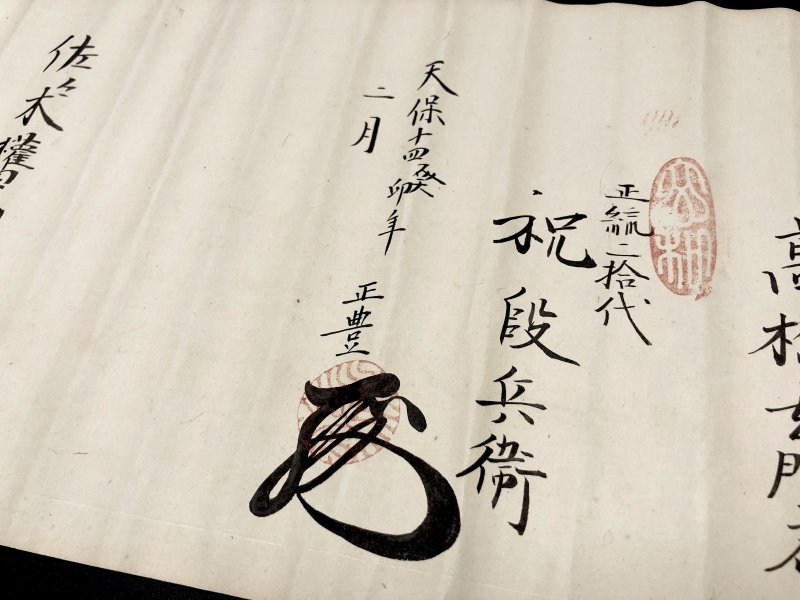 高橋
正統二拾代
祝段兵衛
天保十四癸卯年
二月
正豊
佐々木權